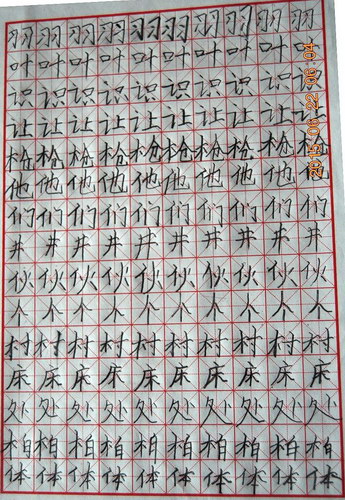 羽羽羽羽羽羽羽羽羽羽
叶叶叶叶叶叶叶叶叶叶
识识识识识识识识识识
让让让让让让让让让让
枪枪枪枪枪枪枪枪枪枪
他他他他他他他他他他
们们们们们们们们们们
井井井井井井井井井井
伙伙伙伙伙伙伙伙伙伙
个个个个个个个个个个
村村村村村村村村村村
床床床床床床床床床床
处处处处处处处处处处
柏柏柏柏柏柏柏柏柏柏
体体体体体体体体体体